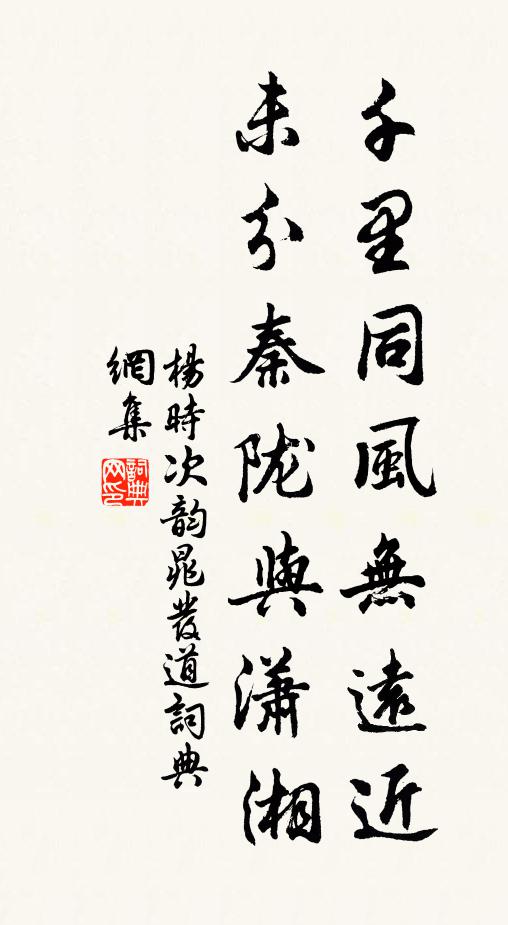 千里同風無遠近
未分秦陇與潇湘
楊時次韵晁發道詞典
網集
詞典
网印